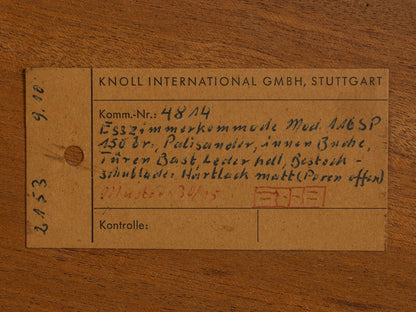 KNOLL INTERNATIONAL GMBH, STUTTGART
Komm.-Nr.: 4814
Esszimmerkommode Mod. 116 SP
150 br., Palisander, innen Buche,
Türen Bast, Leder hell, Besteck-
schublade: Hartlack matt (Poren offen)
Muster:
Kontrolle:
2153 9.10